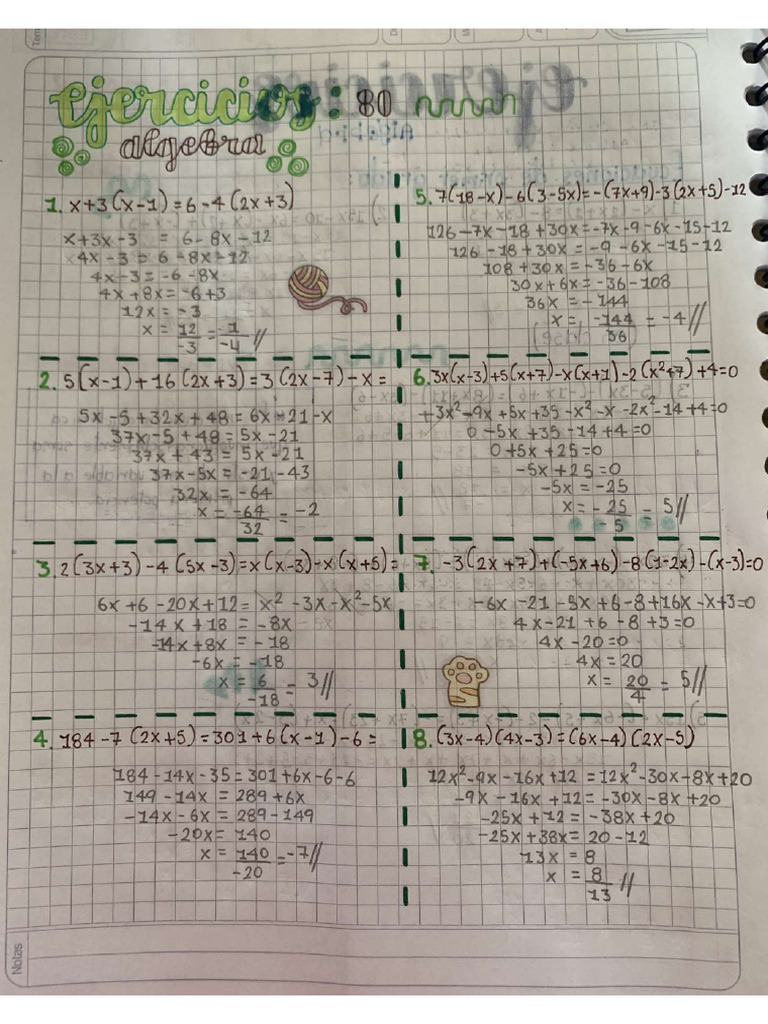 ejercicios: 80
algebra
1. x+3(x-1)=6-4(2x+3)
x+3x-3 = 6-8x-12
4x-3=6-8x-12
4x-3=-6-8x
4x+8x=-6+3
12x=-3
x=12/-3=-1/-4//
2. 5(x-1)+16(2x+3)=3(2x-7)-x=
5x-5+32x+48=6x-21-x
37x-5+48=5x-21
37x+43=5x-21
37x-5x=-21-43
32x=-64
x=-64/32=-2
3. 2(3x+3)-4(5x-3)=x(x-3)-x(x+5)=
6x+6-20x+12=x²-3x-x²-5x
-14x+18=-8x
-14x+8x=-18
-6x=-18
x=6/-18=3//
4. 184-7(2x+5)=301+6(x-1)-6=
184-14x-35=301+6x-6-6
149-14x=289+6x
-14x-6x=289-149
-20x=140
x=140/-20=-7//
5. 7(18-x)-6(3-5x)=-(7x+9)-3(2x+5)-12
126-7x-18+30x=-7x-9-6x-15-12
126-18+30x=-9-6x-15-12
108+30x=-36-6x
30x+6x=-36-108
36x=-144
x=-144/36=-4//
6. 3x(x-3)+5(x+7)-x(x+1)-2(x²+7)+4=0
+3x²-9x+5x+35-x²-x-2x²-14+4=0
0-5x+35-14+4=0
0+5x+25=0
-5x+25=0
-5x=-25
x=-25/-5=5//
7. -3(2x+7)+(-5x+6)-8(1-2x)-(x-3)=0
-6x-21-5x+6-8+16x-x+3=0
4x-21+6-8+3=0
4x-20=0
4x=20
x=20/4=5//
8. (3x-4)(4x-3)=(6x-4)(2x-5)
12x²-9x-16x+12=12x²-30x-8x+20
-9x-16x+12=-30x-8x+20
-25x+12=-38x+20
-25x+38x=20-12
13x=8
x=8/13//
Notas